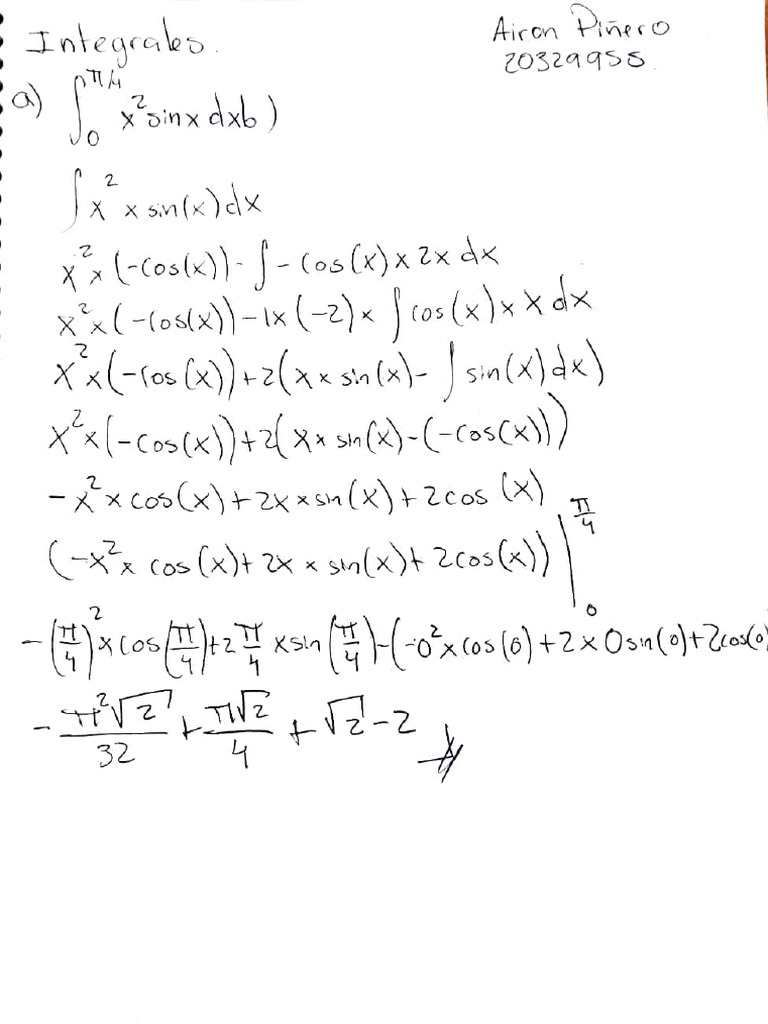 Integrales.
Airon Piñero
20329955
a) ∫₀^π/4 x² sinx dxb)
∫ x² x sin(x) dx
x² x (-cos(x)) - ∫ - cos(x) x 2x dx
x² x (-cos(x)) - 1x (-2) x ∫ cos(x) x x dx
x² x (-cos(x)) + 2(x x sin(x) - ∫ sin(x) dx)
x² x (-cos(x)) + 2(x x sin(x) - (-cos(x)))
-x² x cos(x) + 2x x sin(x) + 2cos(x)
(-x² x cos(x) + 2x x sin(x) + 2cos(x)) |₀^π/4
-(π/4)² x cos(π/4) + 2 π/4 x sin(π/4) - (-0² x cos(0) + 2 x 0 sin(0) + 2cos(0)
-π²√2/32 + π√2/4 + √2 - 2